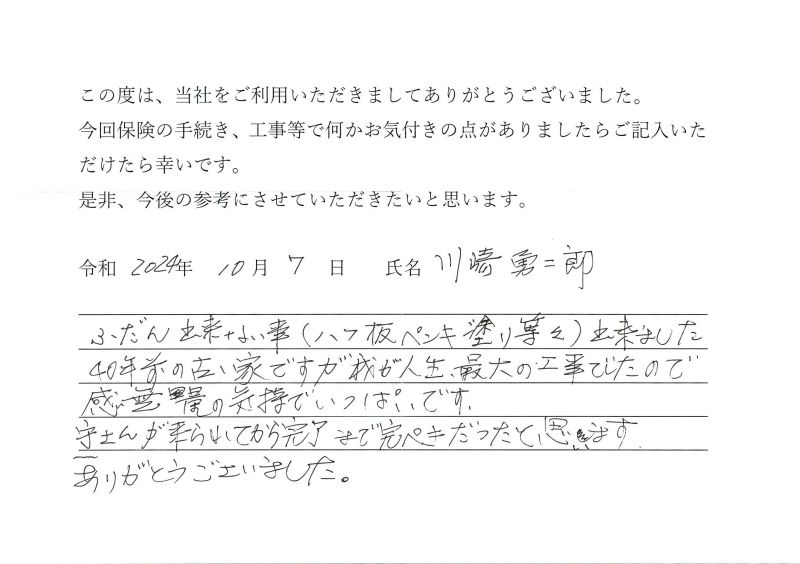 この度は、当社をご利用いただきましてありがとうございました。
今回保険の手続き、工事等で何かお気付きの点がありましたらご記入いた
だけたら幸いです。
是非、今後の参考にさせていただきたいと思います。
令和 2024年 10月 7日 氏名 川崎勇二郎
ふだん出来ない事(ハフ板ペンキ塗り等々)出来ました
40年前の古い家ですが我が人生、最大の工事でしたので
感無量の気持でいっぱいです。
守さんが来られてから完了まで完ペキだったと思います。
ありがとうございました。